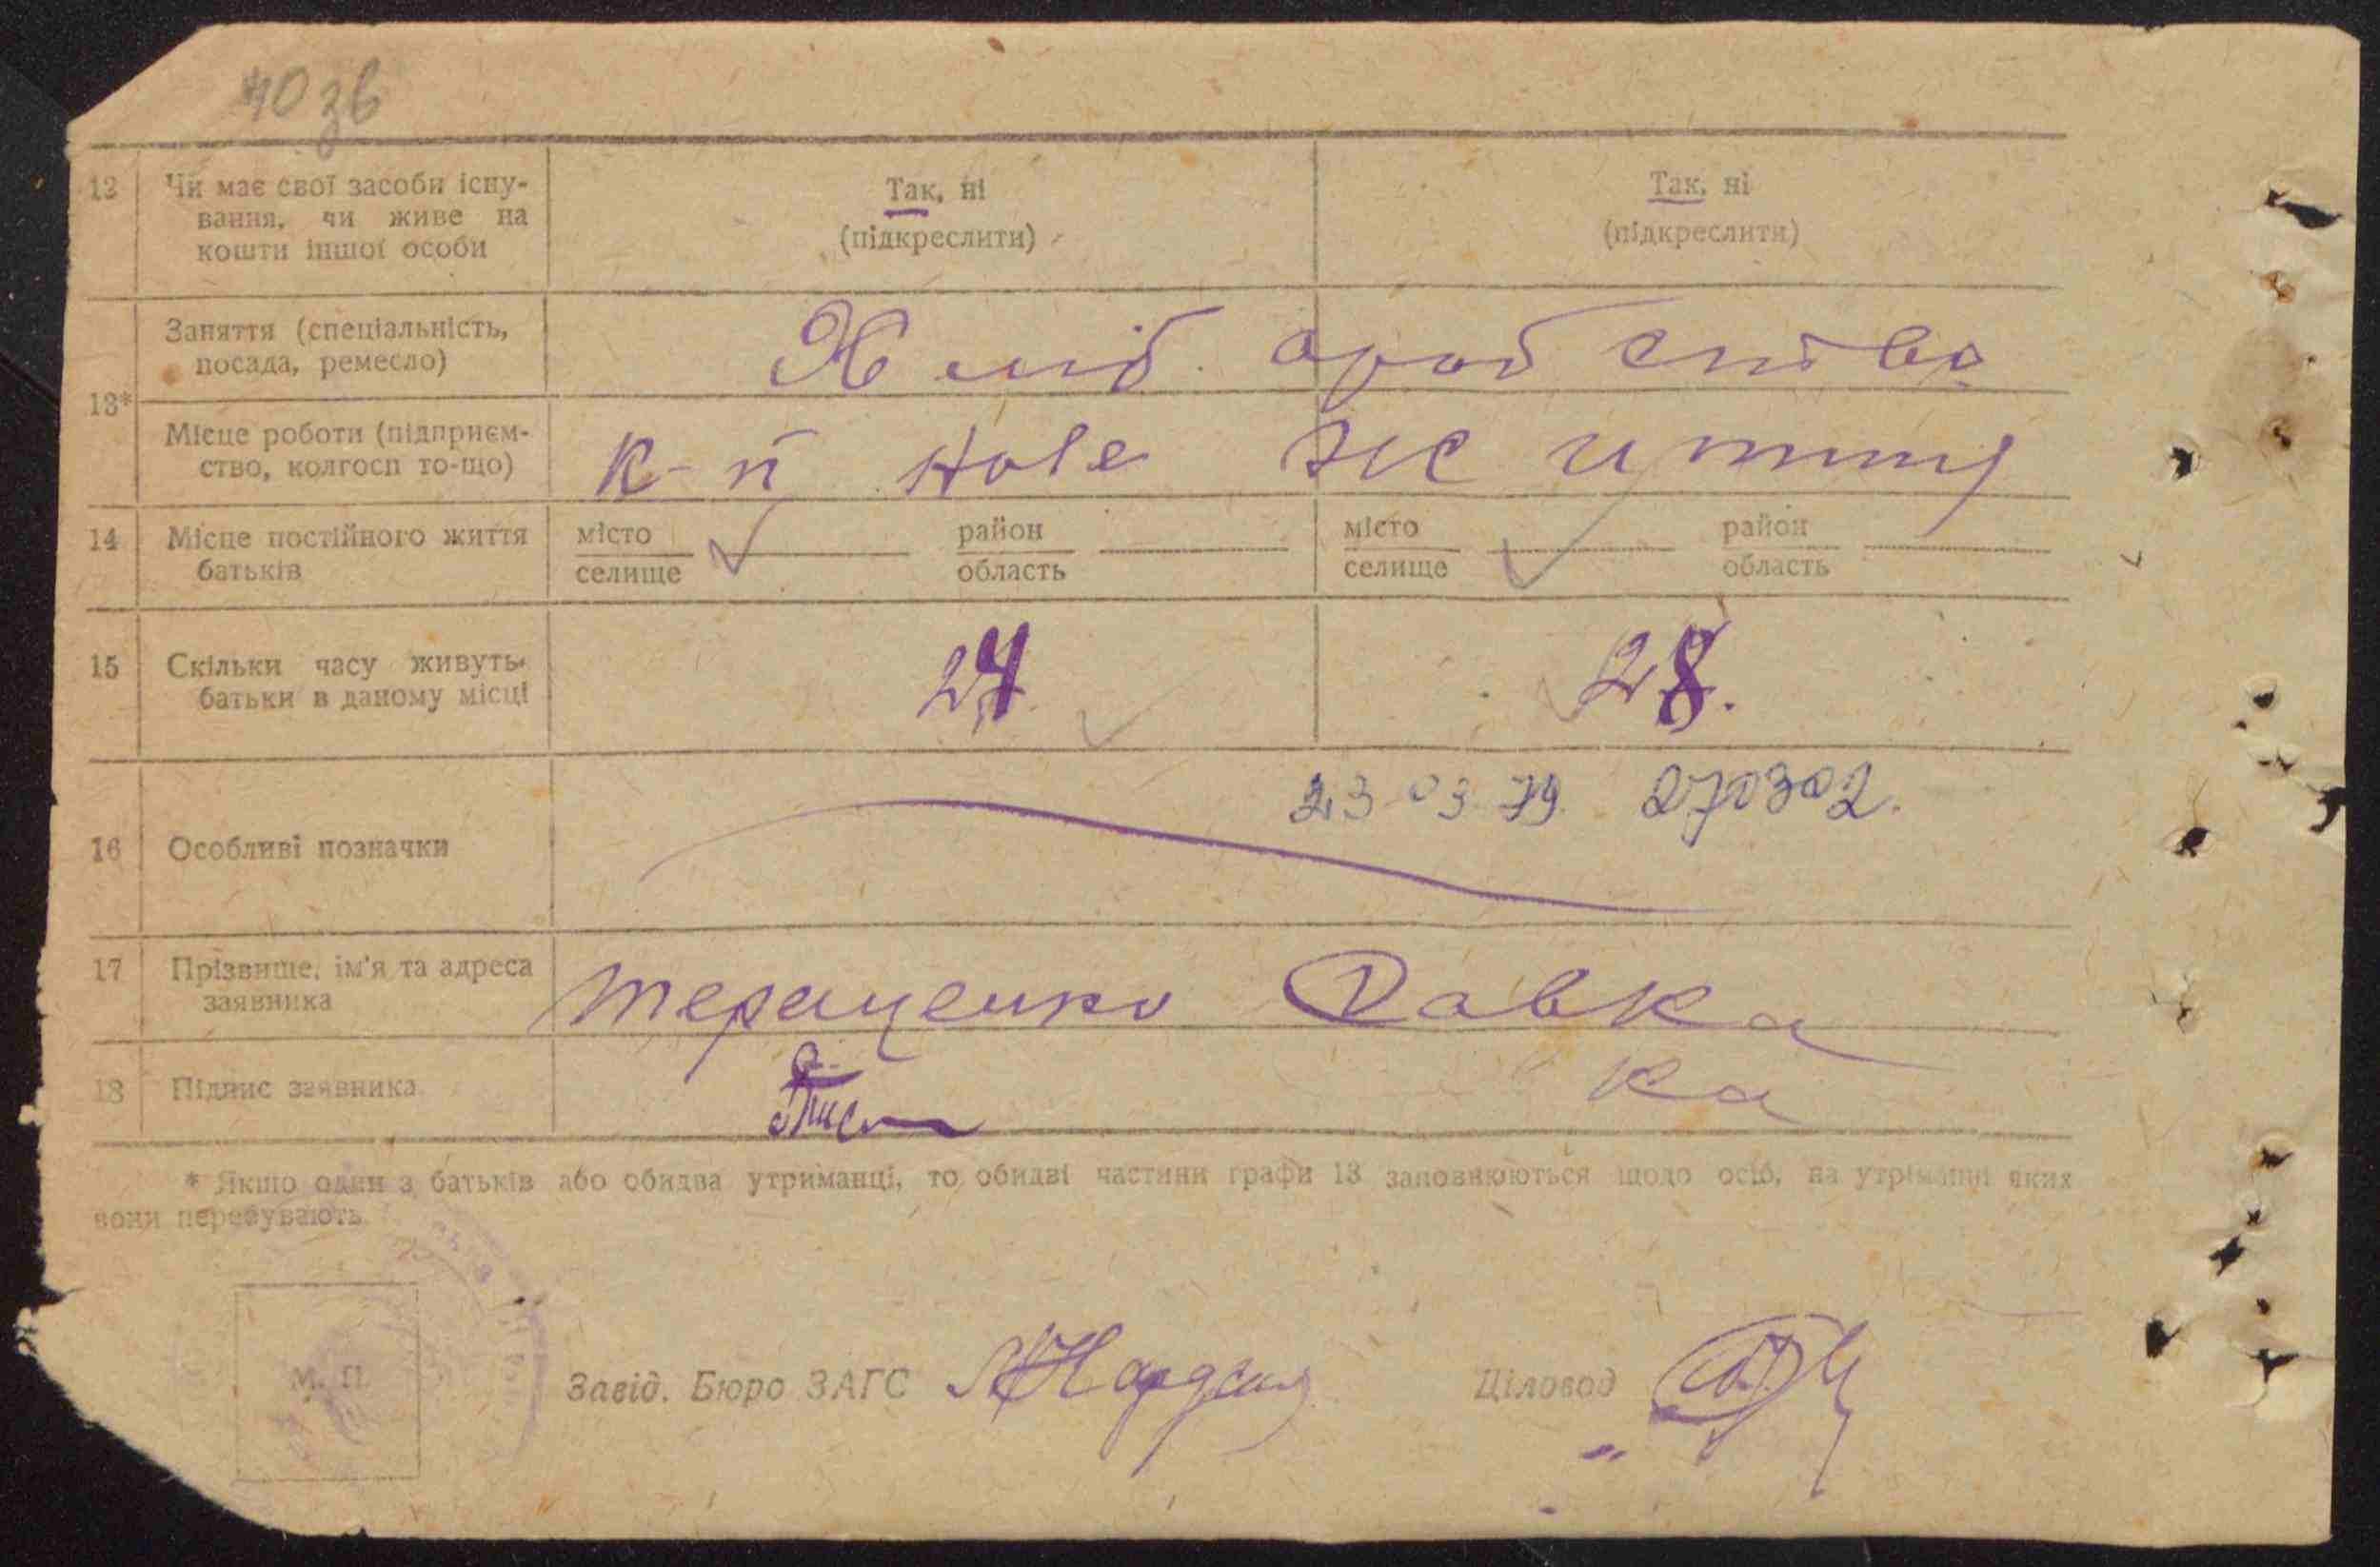 40 зв
12 Чи має свої засоби існу- Так, ні Так, ні
вання, чи живе на (підкреслити) (підкреслити)
кошти іншої особи
Заняття (спеціальність,
посада, ремесло) Хліб. ство
13*
Місце роботи (підприєм-
ство, колгосп то-що) к-п Нове життя
14 Місце постійного життя місто район місто район
батьків селище область селище область
15 Скільки часу живуть 27 28.
батьки в даному місці
23 03 79. 270302.
16 Особливі позначки
17 Прізвище, ім'я та адреса Терещенко Давка
заявника
18 Підпис заявника ка
* Якщо один з батьків або обидва утриманці, то обидві частини графи 13 заповнюються щодо осіб, на утриманні яких
вони перебувають
М. П. Завід. Бюро ЗАГС Діловод